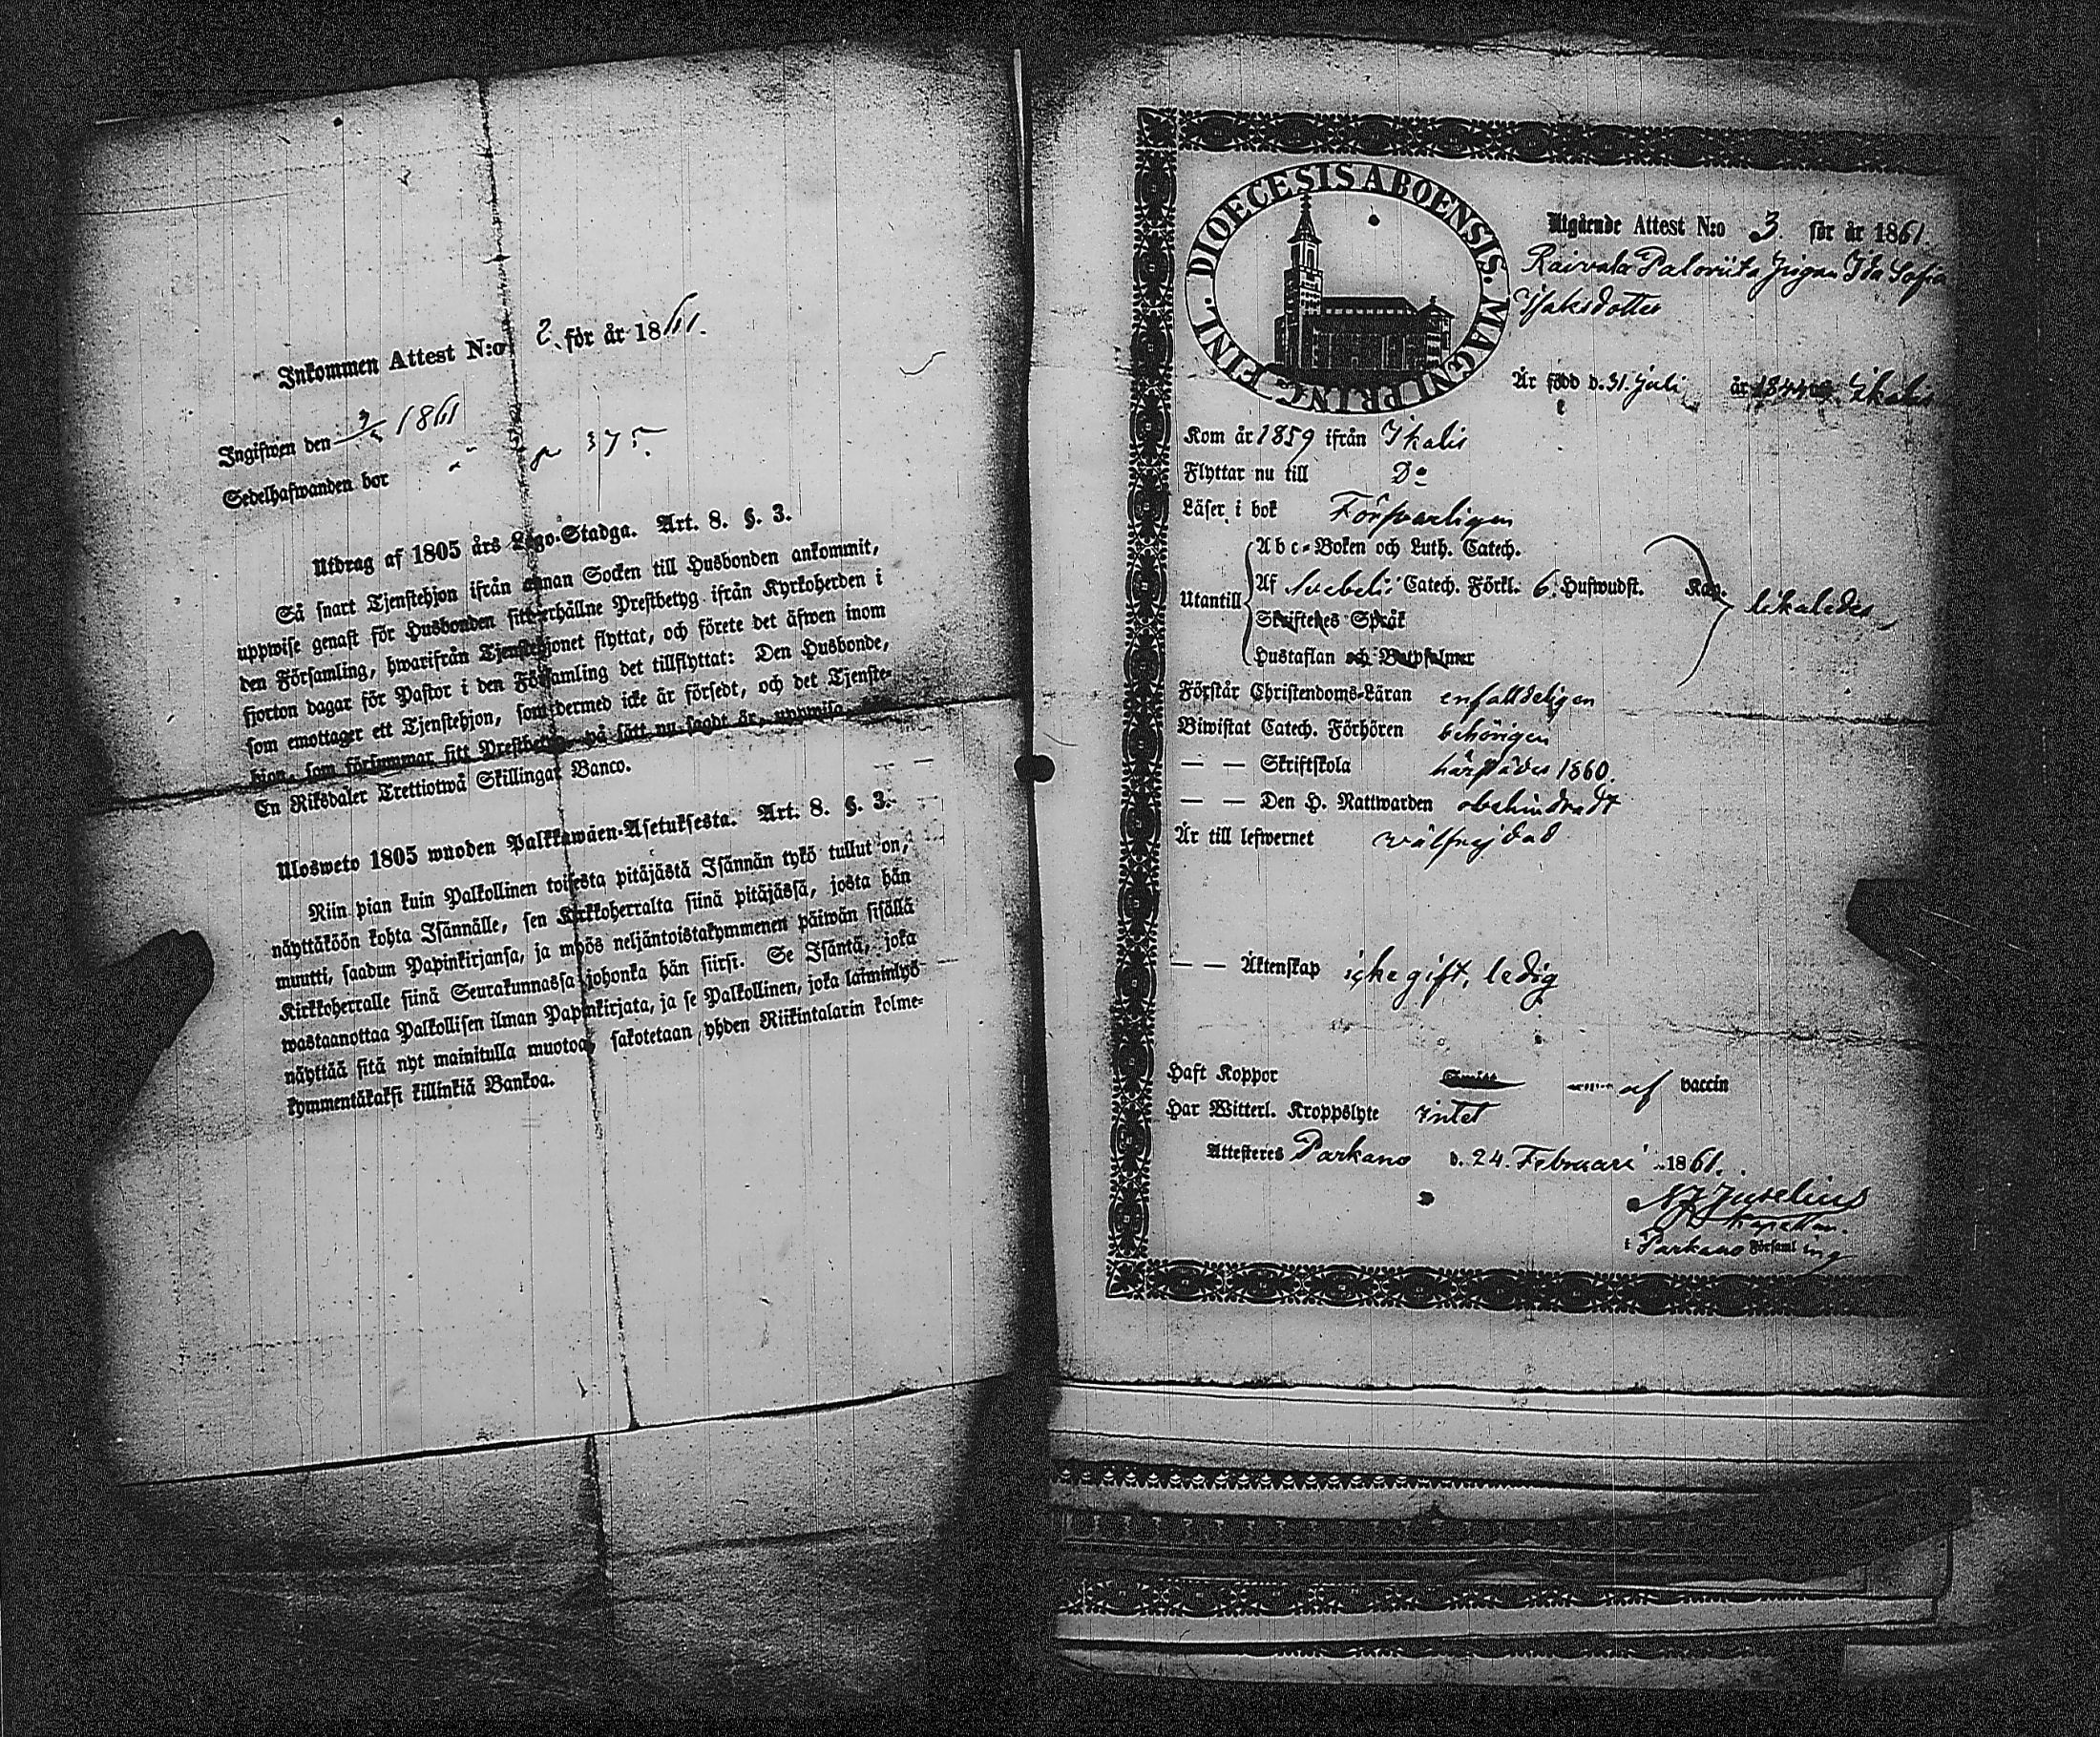 Inkommen Attest N:o 2. för år 1861.
Ingifwen den 3/5 1861
Sedelhafwanden bor 375
Utdrag af 1805 års Lego-Stadga. Art. 8. §. 3.
Så snart Tjenstehjon ifrån annan Socken till Husbonden ankommit,
uppwise genast för Husbonden sitt erhållne Prestbetyg ifrån Kyrkoherden i
den Församling, hwarifrån Tjenstehjonet flyttat, och förete det äfwen inom
fjorton dagar för Pastor i den Församling det tillflyttat: Den Husbonde,
som emottager ett Tjenstehjon, som dermed icke är försedt, och det Tjenste-
hjon, som försummar sitt Prestbetyg, på sätt nu sagdt är, uppwisa
En Riksdaler Trettiotwå Skillingar Banco.
Ulosweto 1805 wuoden Palkkawäen-Asetuksesta. Art. 8. §. 3.
Niin pian kuin Palkollinen toisesta pitäjästä Isännän tykö tullut on,
näyttäköön kohta Isännälle, sen Kirkkoherralta siinä pitäjässä, josta hän
muutti, saadun Papinkirjansa, ja myös neljäntoistakymmenen päiwän sisällä
Kirkkoherralle siinä Seurakunnassa johonka hän siirsi. Se Isäntä, joka
wastaanottaa Palkollisen ilman Papinkirjata, ja se Palkollinen, joka laiminlyö
näyttää sitä nyt mainitulla muotoa, sakotetaan yhden Riikintalarin kolme-
kymmentäkaksi killinkiä Bankoa.
DIOECESIS ABOENSIS. MAGNI PRINC. FINL.
Utgående Attest N:o 3. för år 1861.
Raivala Paloviita Pigan Ida Sofia
Isaksdotter
Är född d. 31. Juli år 1844 Ikalis
Kom år 1859 ifrån Ikalis
Flyttar nu till Do
Läser i bok Försvarligen
Abc-Boken och Luth. Catech.
Utantill Af Svebeli: Catech. Förkl. 6. Hufwudst. Kap. likaledes
Skriftenes Språk
Hustaflan och Botpsalmer
Förstår Christendoms-Läran enfaldeligen
Biwistat Catech. Förhören behörigen
— — Skriftskola härstädes 1860.
— — Den H. Nattwarden obehindradt
Är till lefwernet wälfrejdad
— — Äktenskap icke gift, ledig
Haft Koppor af vaccin
Har Witterl. Kroppslyte intet
Attesteres Parkano d. 24. Februari 1861.
Juselius
Kapellan.
i Parkano Församling